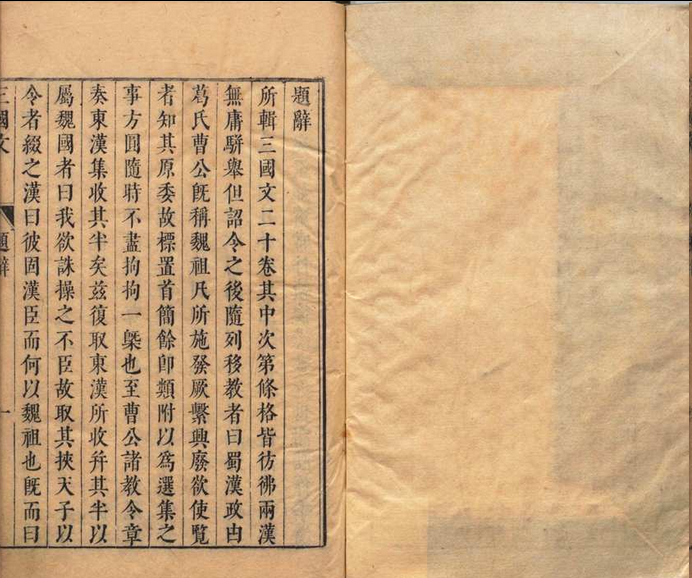 題辭
所輯三國文二十卷其中次第條格皆彷彿兩漢
無庸駢舉但詔令之後隨列移教者曰蜀漢政由
葛氏曹公旣稱魏祖凡所施發厥繫興廢欲使覽
者知其原委故標置首簡餘卽類附以爲選集之
事方圓隨時不盡拘拘一槩也至曹公諸教令章
奏東漢集收其半矣兹復取東漢所收幷其半以
屬魏國者曰我欲誅操之不臣故取其挾天子以
令者綴之漢曰彼固漢臣而何以魏祖也旣而曰
三國文
題辭
一